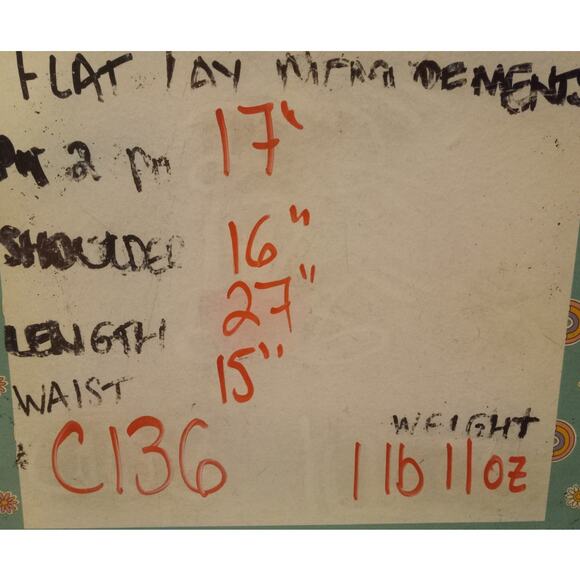 FLAT LAY MEASUREMENTS
Pit 2 Pit 17"
SHOULDER 16"
LENGTH 27"
WAIST 15"
WEIGHT
C136 1 lb 11 oz